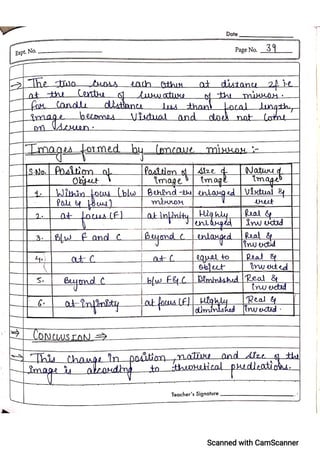 Date
Expt. No.
Page No. 39
→ The two cross each other at distance 2f i.e
at the Centre of curvature of the mirror.
For candle distance less than focal length,
image becomes Virtual and does not come
on screen.
Images formed by Concave mirror :-
S No. Position of Object Position of Image Size of Image Nature of Image
1. Within focus (b/w Pole & focus) Behind the mirror enlarged Virtual & erect
2. at focus (F) at infinity Highly enlarged Real & Inverted
3. B/w F and C Beyond C enlarged Real & Inverted
4. at C at C equal to object Real & Inverted
5. Beyond C b/w F & C Diminished Real & Inverted
6. at infinity at focus (F) Highly diminished Real & Inverted.
⇒ CONCLUSION ⇒
→ This change in position, nature and size of the
image is according to theoretical predications.
Teacher's Signature
Scanned with CamScanner